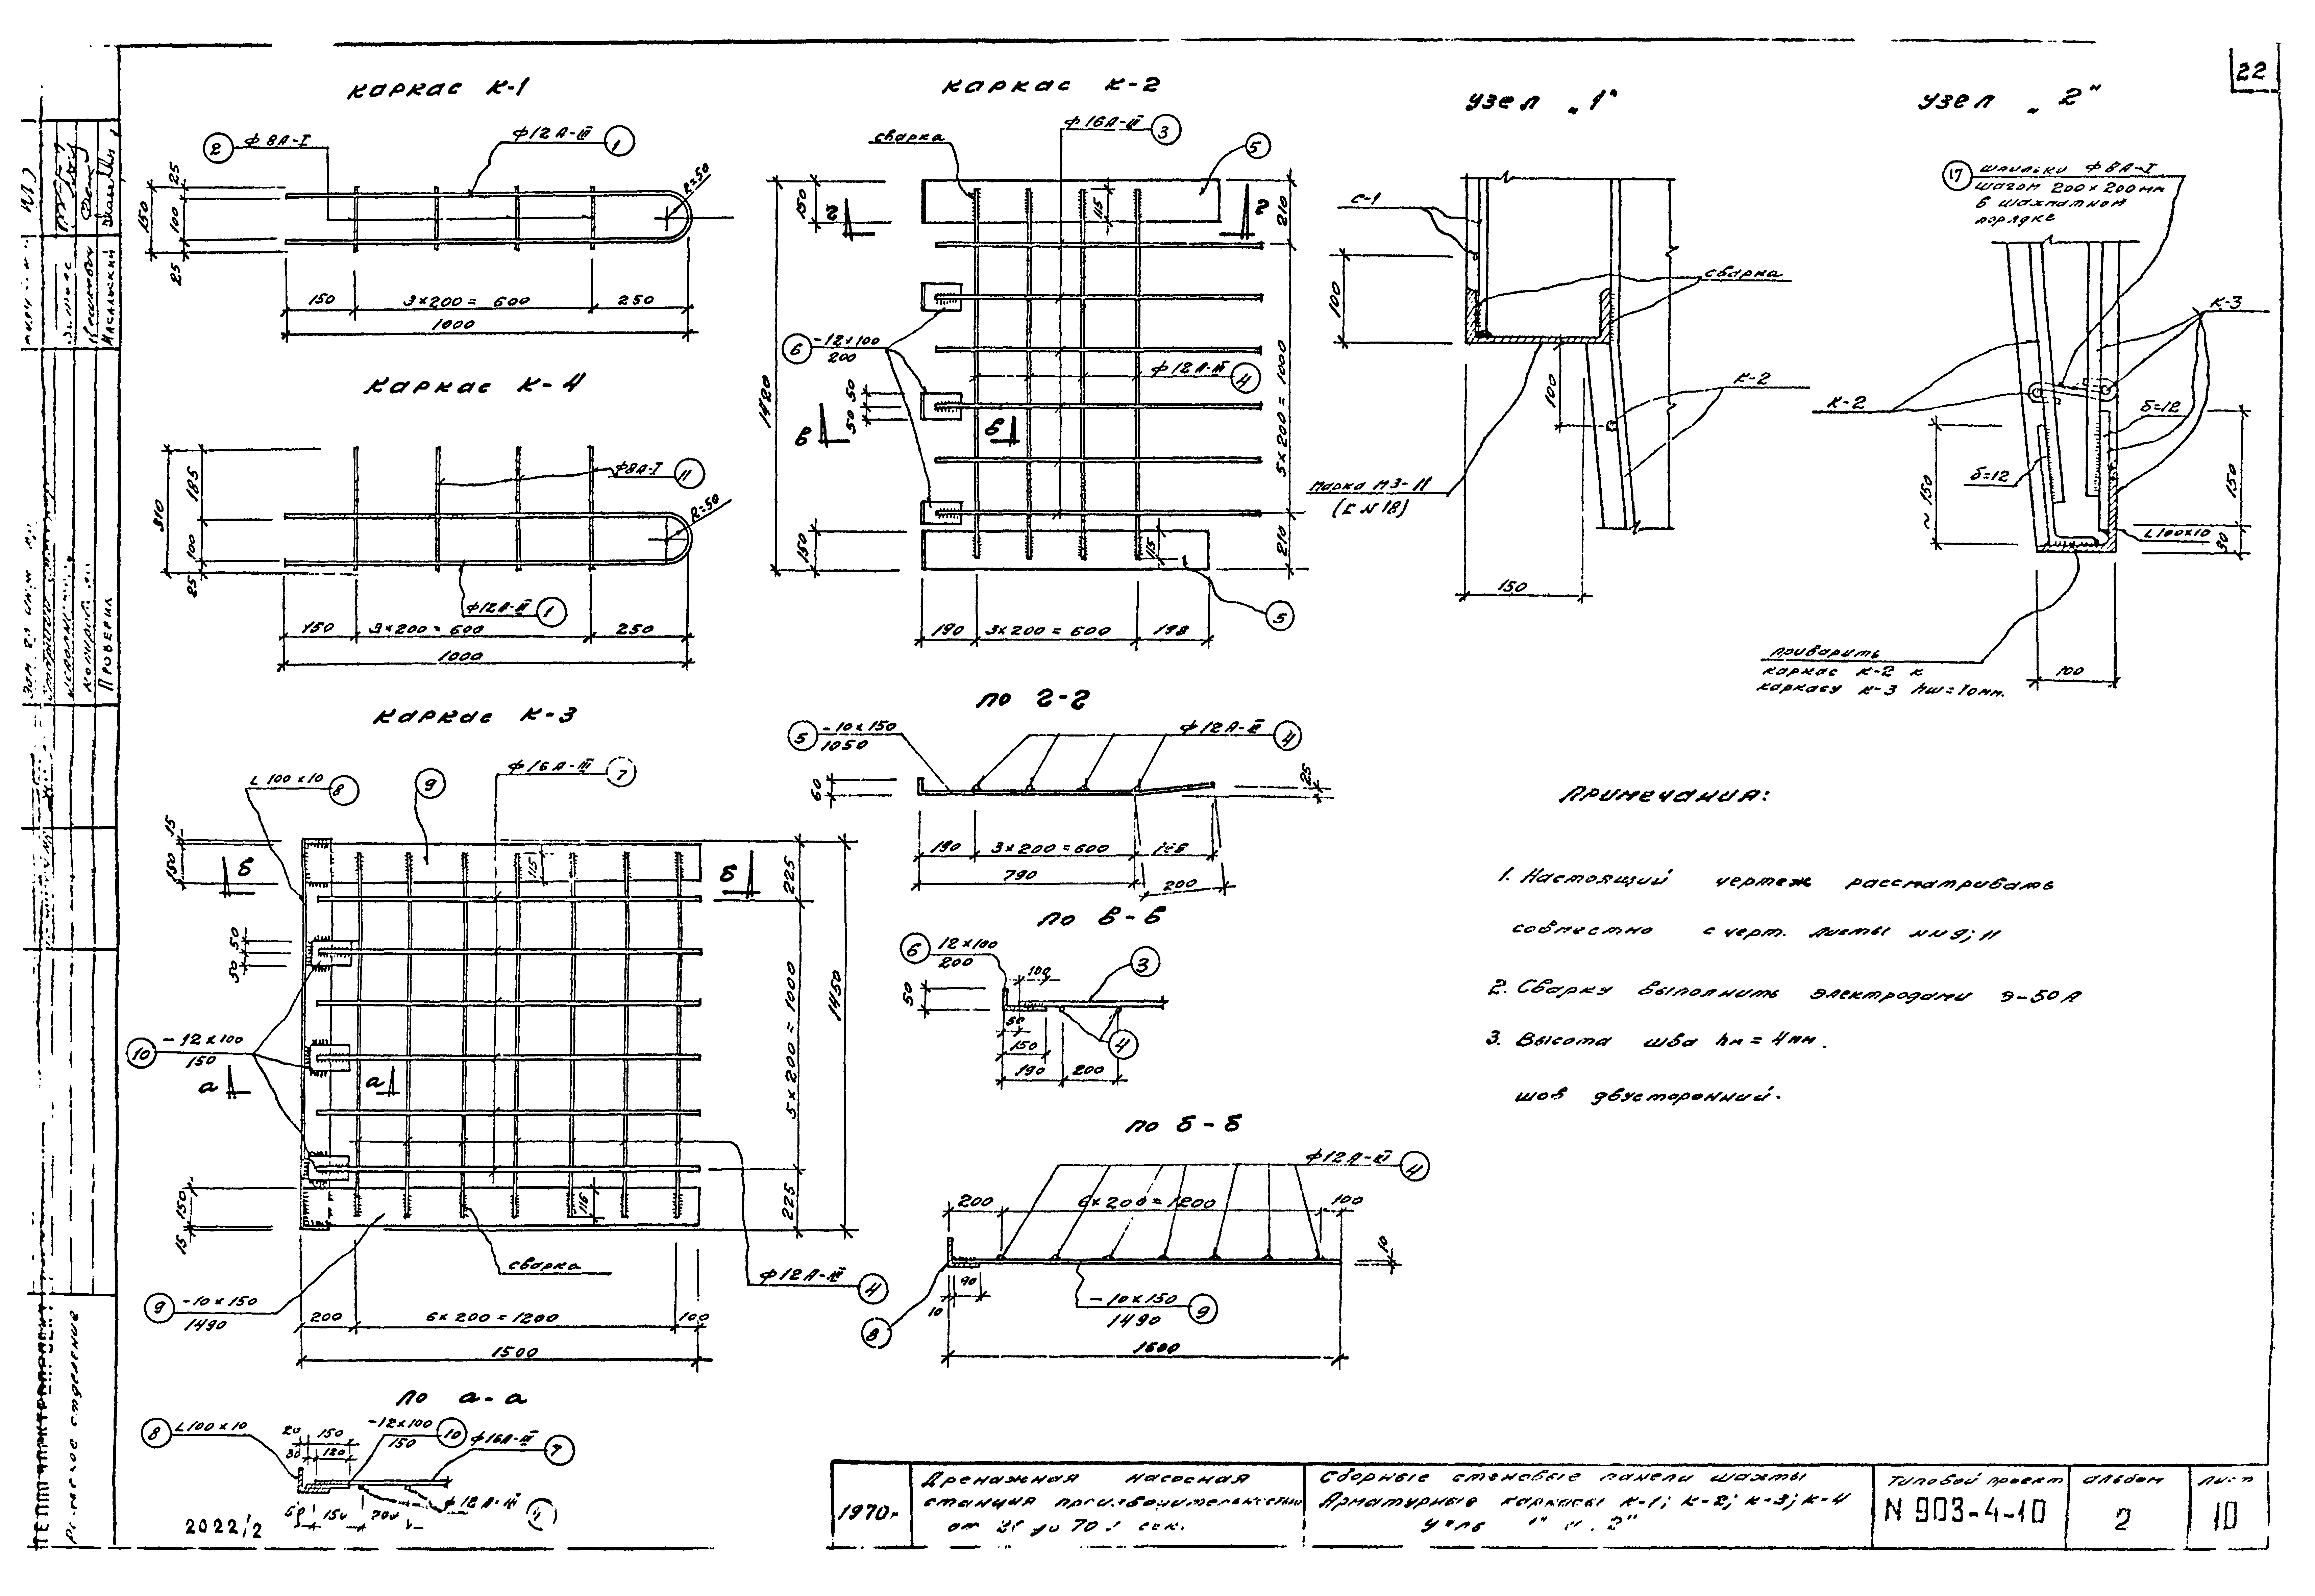 22
каркас К-1
② ф8А-I
ф12А-III ①
R=50
25
100
25
150
150
3×200=600
250
1000
каркас К-4
ф8А-I ⑪
R=50
ф12А-III ①
185
100
25
310
150
3×200=600
250
1000
каркас К-2
сварка
ф16А-II ③
⑤
150
115
г
г
210
1420
⑥ -12×100
200
50 50
ф12А-III ④
5×200=1000
в
в
150
115
210
⑤
190
3×200=600
198
узел „1"
С-1
100
сварка
К-2
100
Марка МЗ-11
(Е N 18)
150
узел „2"
⑰ шпильки ф8А-I
шагом 200×200мм
в шахматном
порядке
К-3
К-2
δ=12
δ=12
~150
150
L100×10
30
приварить
каркас К-2 к
каркасу К-3 hш=10мм.
100
каркас К-3
L100×10 ⑧
⑨
ф16А-III ⑦
15
150
б
б
115
225
50 50
5×200=1000
1450
⑩ -12×100
150
а
а
150
15
115
225
сварка
ф12А-III ④
⑨ -10×150
1490
200
6×200=1200
100
1500
по г-г
⑤ -10×150
1050
ф12А-III ④
60
25
190
3×200=600
790
200
по в-в
⑥ 12×100
200
100
③
50
50
150
④
190
200
по б-б
ф12А-III ④
200
6×200=1200
100
10
90
10
-10×150 ⑨
1490
⑧
1600
по а-а
⑧ L100×10
20
150
30
120
-12×100 ⑩
150
ф16А-III ⑦
150
ф12А-III
Примечания:
1. Настоящий чертеж рассматривать
совместно с черт. листы NN 9; 11
2. Сварку выполнить электродами Э-50А
3. Высота шва hм = 4мм.
шов двусторонний.
Проверил
Масальский
2022/2
1970г
Дренажная насосная
станция производительностью
от до 70 л сек.
Сборные стеновые панели шахты
Арматурные каркасы К-1; К-2; К-3; К-4
Типовой проект
N 903-4-10
альбом
2
лист
10